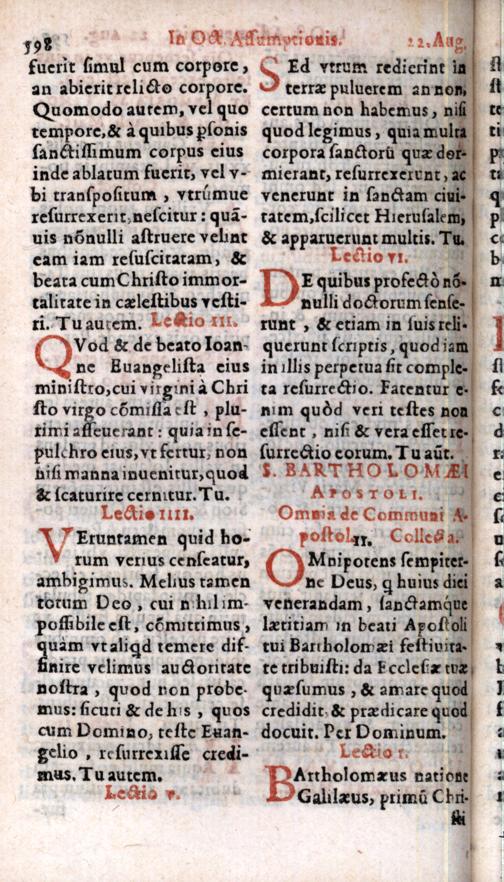 598
In Oct. Assumptionis.
22. Aug.
fuerit simul cum corpore,
an abierit relicto corpore.
Quomodo autem, vel quo
tempore, & à quibus ꝑsonis
sanctissimum corpus eius
inde ablatum fuerit, vel v-
bi transpositum, vtrúmue
resurrexerit, nescitur: quã-
uis nõnulli astruere velint
eam iam resuscitatam, &
beata cum Christo immor-
talitate in cælestibus vesti-
ri. Tu autem. Lectio III.
QVod & de beato Ioan-
ne Euangelista eius
ministro, cui virgini à Chri
sto virgo cõmissa est, plu-
rimi asseuerant: quia in se-
pulchro eius, vt fertur, non
nisi manna inuenitur, quod
& scaturire cernitur. Tu.
Lectio IIII.
VEruntamen quid ho-
rum verius censeatur,
ambigimus. Melius tamen
totum Deo, cui nihil im-
possibile est, cõmittimus,
quàm vt aliqd temere dif-
finire velimus auctoritate
nostra, quod non probe-
mus: sicuti & de his, quos
cum Domino, teste Euan-
gelio, resurrexisse credi-
mus. Tu autem.
Lectio v.
SEd vtrum redierint in
terræ puluerem an non,
certum non habemus, nisi
quod legimus, quia multa
corpora sanctorũ quæ dor-
mierant, resurrexerunt, ac
venerunt in sanctam ciui-
tatem, scilicet Hierusalem,
& apparuerunt multis. Tu.
Lectio vi.
DE quibus profectò nõ-
nulli doctorum sense-
runt, & etiam in suis reli-
querunt scriptis, quod iam
in illis perpetua sit comple-
ta resurrectio. Fatentur e-
nim quòd veri testes non
essent, nisi & vera esset re-
surrectio eorum. Tu aũt.
S. BARTHOLOMÆI
APOSTOLI.
Omnia de Communi A-
postol. II. Collecta.
OMnipotens sempiter-
ne Deus, q huius diei
venerandam, sanctamque
lætitiam in beati Apostoli
tui Bartholomæi festiuita-
te tribuisti: da Ecclesiæ tuæ
quæsumus, & amare quod
credidit, & prædicare quod
docuit. Per Dominum.
Lectio I.
BArtholomæus natione
Galilæus, primũ Chri-
sti